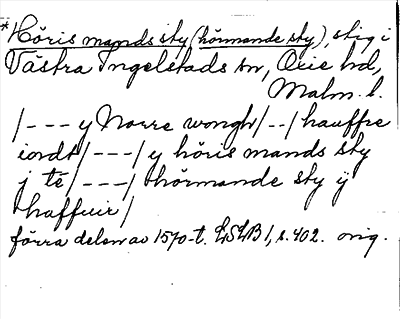 *Höris mands sty (hörmande sty), stig i
Västra Ingelstads sn, Oxie hd,
Malm. l.
/--- y Norre wongh/--/hauffre
iordt/---/ y höris mands sty
j te/---/ hörmande sty ÿ
haffuir/
förra delen av 1570-t. LSLB 1, s. 402. orig.